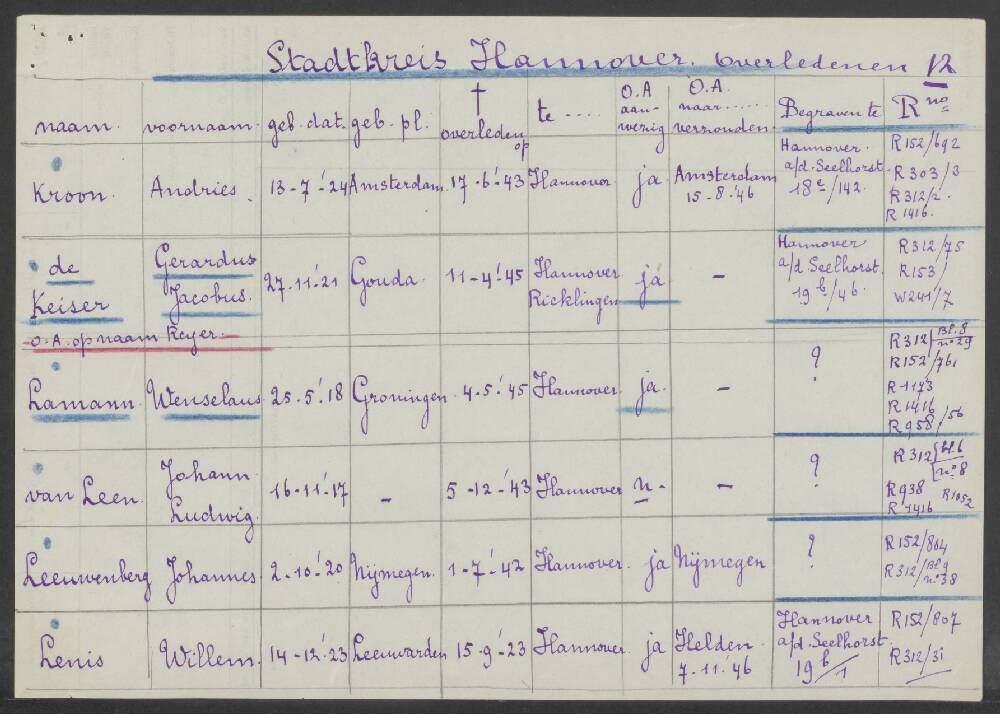 Stadtkreis Hannover. overledenen 12
naam. voornaam. geb. dat. geb. pl. † overleden op te ..... O.A aanwezig O.A. naar ..... verzonden. Begraven te R no
Kroon. Andries. 13-7-'24 Amsterdam. 17-6-'43 Hannover ja Amsterdam 15-8-'46 Hannover. a/d. Seelhorst. 18e/142. R152/692
R303/3
R312/2.
R1416.
de Keiser Gerardus Jacobus. 27-11-'21 Gouda. 11-4-'45 Hannover Ricklingen ja - Hannover a/d Seelhorst. 19b/46. R312/75
R153/
W241/7
O.A. op naam Keyer.
Lamann. Wenselaus. 25-5-'18 Groningen. 4-5-'45 Hannover. ja. - ? R312/Bl.8 no29
R152/761
R-1173
R1416
R958/56
van Leen. Johann Ludwig. 16-11-'17 - 5-12-'43 Hannover n. - ? R312/bl.6 no8
R938 R1052
R1416
Leeuwenberg Johannes. 2-10-'20 Nijmegen. 1-7-'42 Hannover. ja Nijmegen ? R152/804
R312/Bl9 no38
Lenis Willem. 14-12-'23 Leeuwarden 15-9-'23 Hannover. ja Helden 7-11-'46 Hannover a/d. Seelhorst. 19b/1 R152/807
R312/31